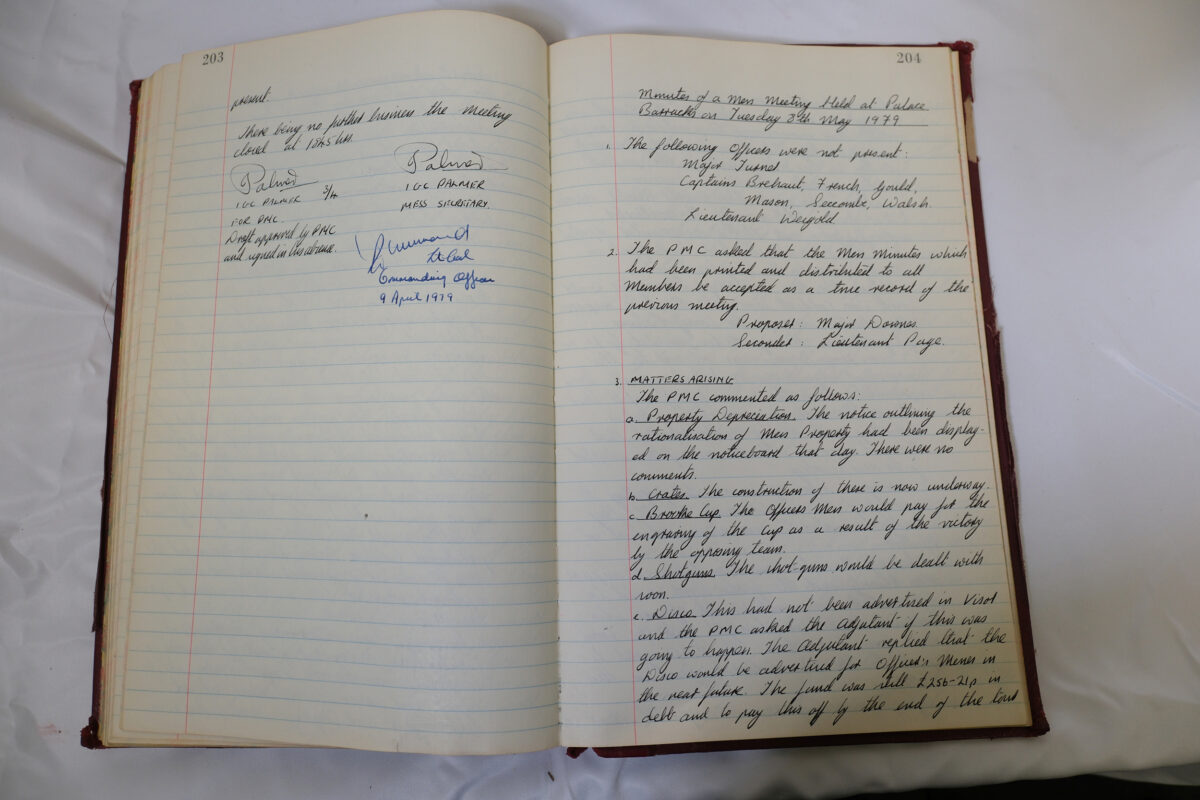 203
present.
There being no further business the meeting
closed at 1845 hrs.
Palmer
IGC PALMER 3/4
FOR PMC.
Draft approved by PMC
and signed in his absence.
Palmer
IGC PALMER
MESS SECRETARY.
Lt Col
Commanding Officer
9 April 1979
204
Minutes of a Mess Meeting Held at Palace
Barracks on Tuesday 8th May 1979
1. The following Officers were not present:
Major Turner
Captains Brehaut, French, Gould,
Mason, Seccombe, Walsh.
Lieutenant Weigold
2. The PMC asked that the Mess Minutes which
had been printed and distributed to all
Members be accepted as a true record of the
previous meeting.
Proposer: Major Downes.
Seconder: Lieutenant Page.
3. MATTERS ARISING
The PMC commented as follows:
a. Property Depreciation. The notice outlining the
rationalisation of Mess Property had been display-
ed on the noticeboard that day. There were no
comments.
b. Crates. The construction of these is now underway.
c. Brooke Cup. The Officers Mess would pay for the
engraving of the cup as a result of the victory
by the opposing team.
d. Shotguns. The shot-guns would be dealt with
soon.
e. Disco. This had not been advertised in Visor
and the PMC asked the Adjutant if this was
going to happen. The Adjutant replied that the
Disco would be advertised for Officers Messes in
the near future. The fund was still £256-21p in
debt and to pay this off by the end of the tour